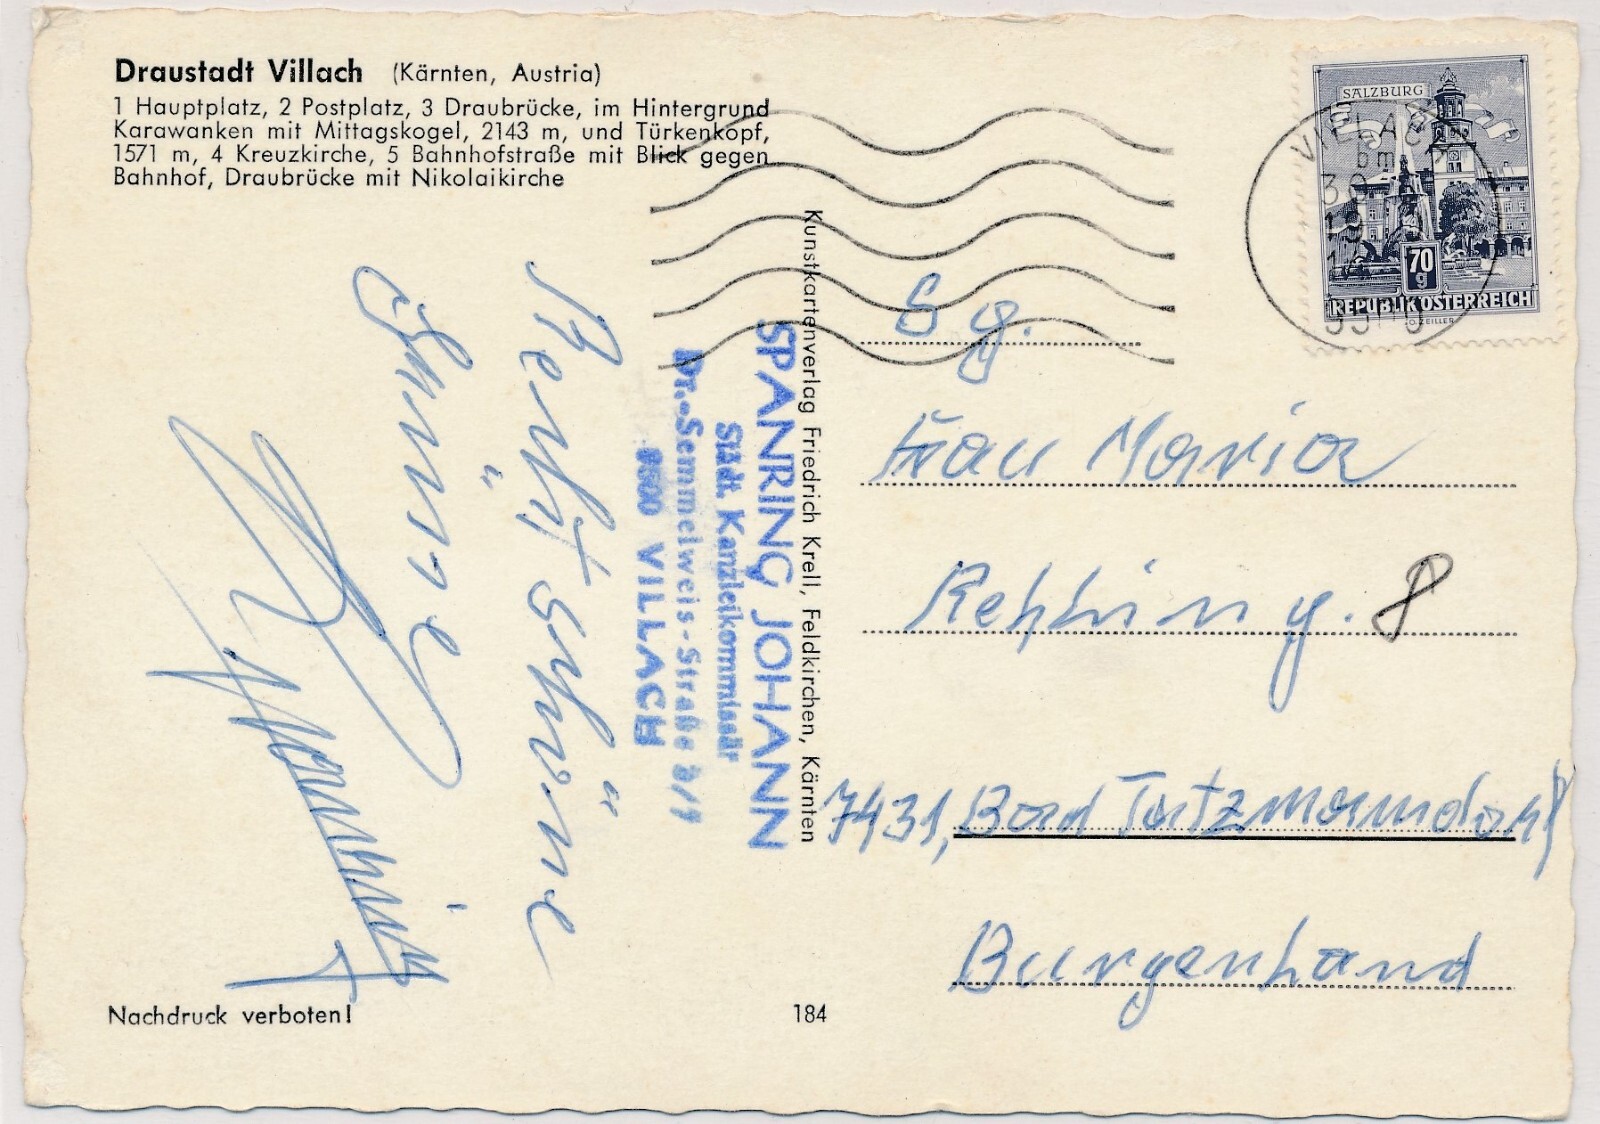 Draustadt Villach (Kärnten, Austria)
1 Hauptplatz, 2 Postplatz, 3 Draubrücke, im Hintergrund
Karawanken mit Mittagskogel, 2143 m, und Türkenkopf,
1571 m, 4 Kreuzkirche, 5 Bahnhofstraße mit Blick gegen
Bahnhof, Draubrücke mit Nikolaikirche
SALZBURG
VILLACH
bm
70
g
REPUBLIK ÖSTERREICH
O. ZEILLER
Kunstkartenverlag Friedrich Krell, Feldkirchen, Kärnten
SPANRING JOHANN
Städt. Kanzleikommissär
Dr.-Semmelweis-Straße
9500 VILLACH
Recht schöne
Grüsse
Sg.
Frau Maria
Rehling. 8
7431, Bad Tatzmannsdorf
Burgenland
Nachdruck verboten!
184